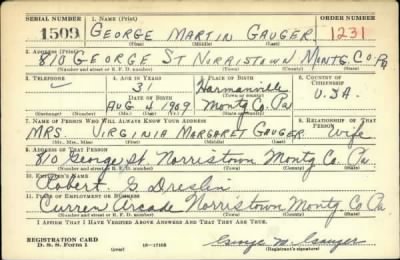 SERIAL NUMBER 1. NAME (Print) ORDER NUMBER
1509 GEORGE MARTIN GAUGER 1231
(First) (Middle) (Last)
2. ADDRESS (Print)
810 GEORGE ST NORRISTOWN MONTG. CO. PA
(Number and street or R. F. D. number) (Town) (County) (State)
3. TELEPHONE 4. AGE IN YEARS 5. PLACE OF BIRTH 6. COUNTRY OF CITIZENSHIP
31 Harmanville
DATE OF BIRTH (Town or county)
AUG 4 1909 Montg Co. Pa U.S.A.
(Mo.) (Day) (Yr.) (State or country)
7. NAME OF PERSON WHO WILL ALWAYS KNOW YOUR ADDRESS 8. RELATIONSHIP OF THAT PERSON
MRS. VIRGINIA MARGARET GAUGER Wife
(Mr., Mrs., Miss) (First) (Middle) (Last)
9. ADDRESS OF THAT PERSON
810 George St. Norristown Montg Co. Pa.
(Number and street or R. F. D. number) (Town) (County) (State)
10. EMPLOYER'S NAME
Robert G. Dreslin
11. PLACE OF EMPLOYMENT OR BUSINESS
Curren Arcade Norristown Montg Co Pa
(Number and street or R. F. D. number) (Town) (County) (State)
I AFFIRM THAT I HAVE VERIFIED ABOVE ANSWERS AND THAT THEY ARE TRUE.
REGISTRATION CARD George M. Gauger
D. S. S. Form 1 (over) 16—17105 (Registrant's signature)